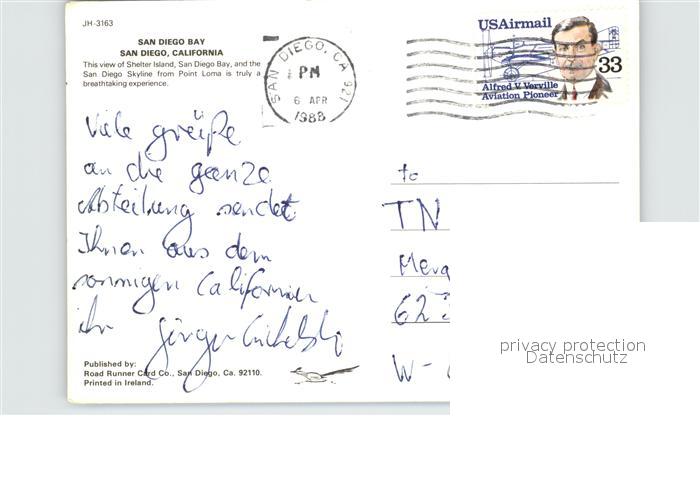 JH-3163
SAN DIEGO BAY
SAN DIEGO, CALIFORNIA
This view of Shelter Island, San Diego Bay, and the
San Diego Skyline from Point Loma is truly a
breathtaking experience.
SAN DIEGO, CA 921
PM
6 APR
1988
USAirmail
33
Alfred V. Verville
Aviation Pioneer
Viele Grüße
an die ganze
Abteilung sendet
Ihnen aus dem
sonnigen Californien
ihr Jürgen
to
TN
W-
Published by:
Road Runner Card Co., San Diego, Ca. 92110.
Printed in Ireland.
privacy protection
Datenschutz